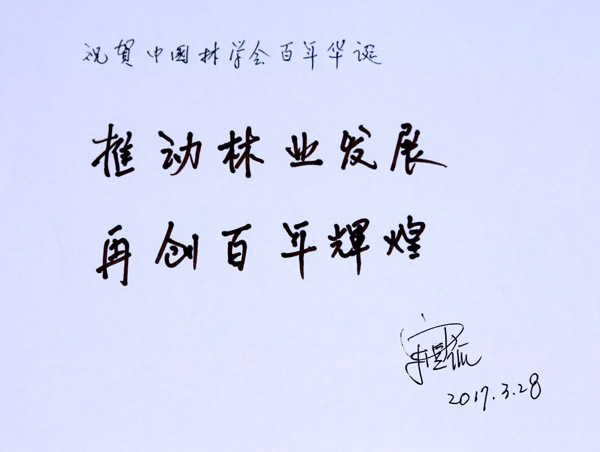 祝贺中国林学会百年华诞
推动林业发展
再创百年辉煌
2017.3.28